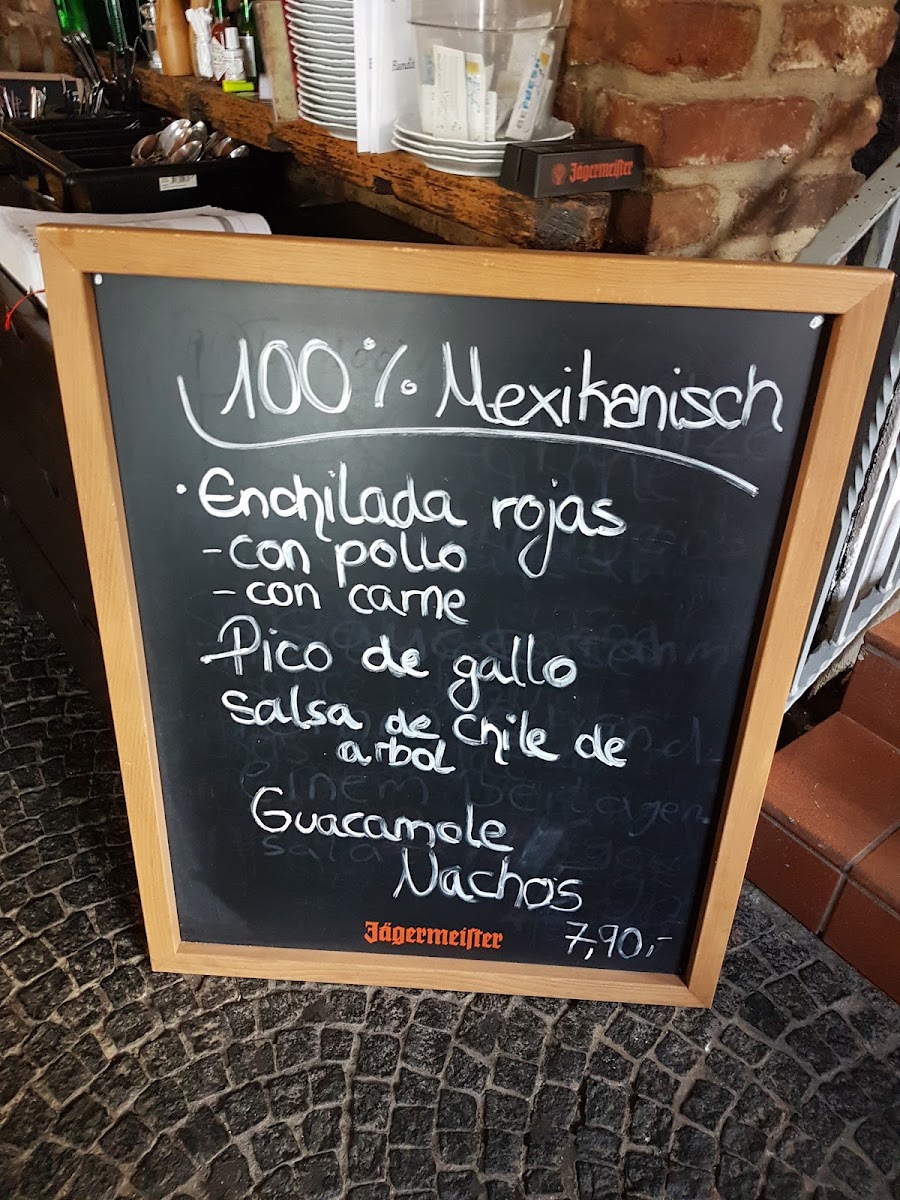 Jägermeister
100% Mexikanisch
· Enchilada rojas
- con pollo
- con carne
Pico de gallo
Salsa de Chile de
arbol
Guacamole
Nachos
Jägermeister
7,90,-